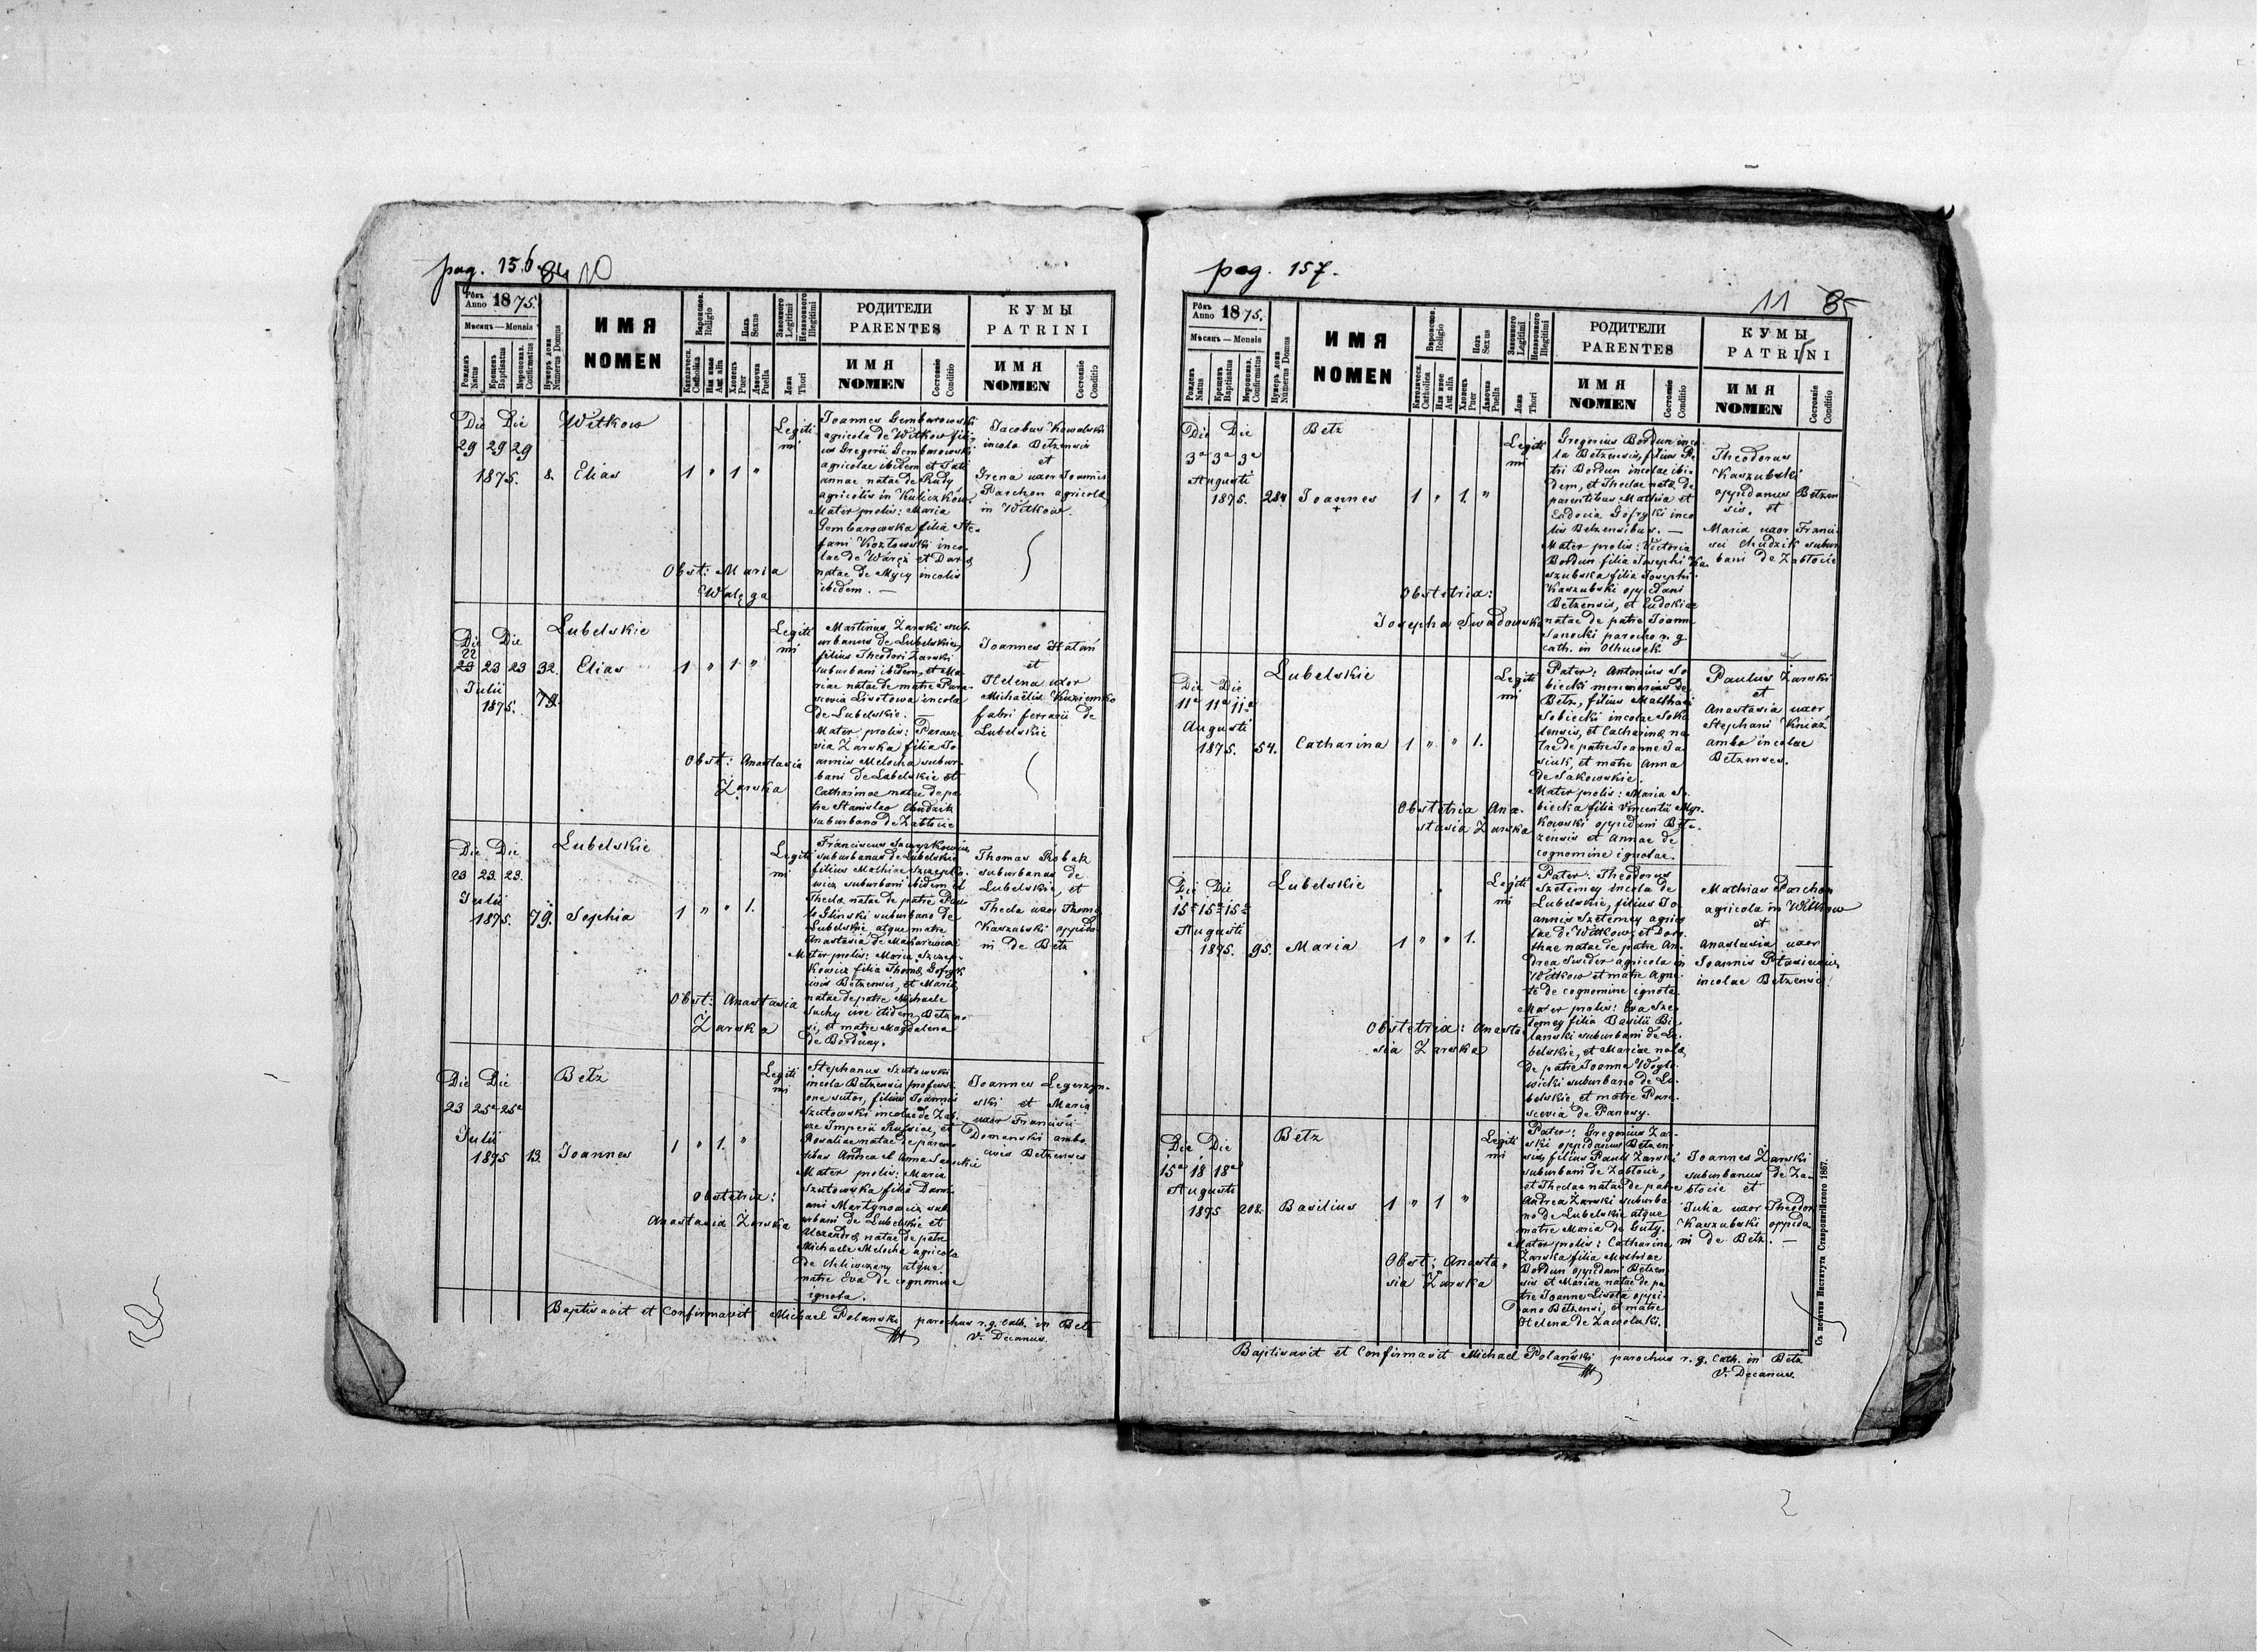 pag. 156. 84 10
Рôкъ
Anno 1875.
Мѣсяцъ — Mensis
Рожденъ
Natus
Крещенъ
Baptisatus
Мѵропомаз.
Confirmatus
Нумеръ дома
Numerus Domus
ИМЯ
NOMEN
Вѣроиспов.
Religio
Католическ.
Catholica
Или иное
Aut alia
Полъ
Sexus
Хлопецъ
Puer
Дѣвочка
Puella
Законного
Legitimi
Незаконного
Illegitimi
Ложа
Thori
РОДИТЕЛИ
PARENTES
ИМЯ
NOMEN
Состояніе
Conditio
КУМЫ
PATRINI
ИМЯ
NOMEN
Состояніе
Conditio
Die Die
29 29 29
1875. 8.
Witkow
Elias
1 " 1 "
Legiti
mi
Obst: Maria
Walęga
Joannes Gembarowski
agricola de Witkow fili-
us Gregorii Gembarowski
agricolae ibidem et Tati
annae natae de Rudy
agricolis in Kuliczkow.
Mater prolis: Maria
Gembarowska filia Ste-
fani Kozłowski inco-
lae de Waręż et Daria
natae de Mycy incolis
ibidem. —
Jacobus Kowalski
incola Betzensis
et
Irena uxor Joannis
Parchon agricola
in Witkow.
Die Die
22
23 23 23 32.
Julii
1875. 79.
Lubelskie
Elias
1 " 1 "
Legiti
mi
Obst: Anastasia
Żarska
Martinus Żarski sub-
urbanus de Lubelskie,
filius Theodori Żarski
suburbani ibidem, et Ma-
riae natae de matre Para-
scevia Lisotowa incola
de Lubelskie. —
Mater prolis: Parasce-
via Żarska filia Jo-
annis Melocha subur-
bani de Lubelskie et
Catharinae natae de pa-
tre Stanislao Chudzik
suburbano de Zabłocie
Joannes Hatan
et
Helena uxor
Michaëlis Kuziemsko
fabri ferrarii de
Lubelskie
Die Die
23 23. 23.
Julii
1875. 79.
Lubelskie
Sophia
1 " " 1.
Legiti
mi
Obst: Anastasia
Żarska
Franciscus Szczepkowicz
suburbanus de Lubelskie
filius Mathiae Szczepko-
wicz suburbani ibidem et
Thecla natae de patre Pau-
lo Glinski suburbano de
Lubelskie, atque matre
Anastasia de Makarewicz
Mater prolis: Maria Szczep-
kowicz filia Thoma Gofryk
civis Betzensis, et Maria
natae de patre Michaele
Suchy cive itidem Betzen-
si, et matre Magdalena
de Borduny.
Thomas Robak
suburbanus de
Lubelskie, et
Thecla uxor Thoma
Kaszubski oppida-
ni de Betz
Die Die
23 25a 25a
Julii
1875 13.
Betz
Joannes
1 " 1. "
Legiti
mi
Obstetrix:
Anastasia Żarska
Stephanus Szutowski
incola Betzensis professi-
one sutor, filius Joannis
Szutowski incolae de Zab-
cze Imperii Russiae, et
Rosaliae natae de paren-
tibus Andrea et Anna Sanockie
Mater prolis: Maria
Szutowska filia Dami-
ani Martynowicz sub-
urbani de Lubelskie et
Alexandra natae de patre
Michaele Melocha agricola
de Chliwczany atque
matre Eva de cognomine
ignota.
Joannes Legerzyn-
ski et Maria
uxor Francisci
Domanski ambo
cives Betzenses
Baptisavit et Confirmavit Michael Polanski parochus r. g. Cath. in Betz
V. Decanus.
pag. 157.
11 85
Рôкъ
Anno 1875.
Мѣсяцъ — Mensis
Рожденъ
Natus
Крещенъ
Baptisatus
Мѵропомаз.
Confirmatus
Нумеръ дома
Numerus Domus
ИМЯ
NOMEN
Вѣроиспов.
Religio
Католическ.
Catholica
Или иное
Aut alia
Полъ
Sexus
Хлопецъ
Puer
Дѣвочка
Puella
Законного
Legitimi
Незаконного
Illegitimi
Ложа
Thori
РОДИТЕЛИ
PARENTES
ИМЯ
NOMEN
Состояніе
Conditio
КУМЫ
PATRINI
ИМЯ
NOMEN
Состояніе
Conditio
Die Die
3a 3a 3a
Augusti
1875. 284.
Betz
Joannes
+
1 " 1. "
Legiti
mi
Obstetrix:
Josepha Swadowska
Gregorius Bordun inco-
la Betzensis, filius Pe-
tri Bordun incolae ibi-
dem, et Theclae nata de
parentibus Mathia et
Eudocia Gofryki inco-
lis Betzensibus. —
Mater prolis: Victoria
Bordun filia Josephi Ka-
szubska filia Josephi
Kaszubski oppidani
Betzensis, et Eudokiae
natae de patre Joanne
Sanocki parocho r. g.
cath. in Olhowek
Theodorus
Kaszubski
oppidanus Betzen
sis. et
Maria uxor Francis-
sci Chudzik subur
bani de Zabłocie
Die Die
11a 11a 11a
Augusti
1875. 54.
Lubelskie
Catharina
1 " " 1.
Legiti
mi
Obstetrix Ana-
stasia Żarska
Pater: Antonius So-
biecki murarius de
Betz, filius Mathaei
Sobiecki incolae Soka
lensis, et Catharina na-
tae de patre Joanne Ja-
siuk, et matre Anna
de Sakowskie.
Mater prolis: Maria So-
biecka filia Vincentii Myr-
kowski oppidani Betz-
zensis et Annae de
cognomine ignotae.
Paulus Żarski
et
Anastasia uxor
Stephani Kniaź
ambo incolae
Betzenses.
Die Die
15a 15a 15a
Augusti
1875. 95.
Lubelskie
Maria
1 " " 1.
Legiti
mi
Obstetrix: Anasta-
sia Żarska
Pater: Theodorus
Szetemey incola de
Lubelskie, filius Jo-
annis Szetemey agrico-
lae de Witkow, et Doro-
thae natae de patre An-
drea Swider agricola in
Witkow et matre Agne-
te de cognomine ignota.
Mater prolis: Eva Sze-
temey filia Basilii Bie-
lanski suburbani de Lu-
belskie, et Mariae nata
de patre Joanne Woyto-
wicki suburbano de Lu-
belskie, et matre Para-
scevia de Panasy.
Mathias Parchon
agricola in Witkow
et
Anastasia uxor
Joannis Ptasiewicz
incolae Betzensis.
Die Die
15a 18 18a
Augusti
1875 208.
Betz
Basilius
1 " 1 "
Legiti
mi
Obst: Anasta-
sia Żarska
Pater: Gregorius Żar-
ski oppidanus Betzen-
sis, filius Pauli Żarski
suburbani de Zabłocie,
et Theclae natae de patre
Andrea Żarski suburba-
no de Lubelskie atque
matre Maria de Guty.
Mater prolis: Catharina
Żarska filia Mathiae
Bordun oppidani Betzen-
sis et Mariae natae de pa-
tre Joanne Lisota oppi-
dano Betzensi, et matre
Helena de Zawoluki.
Joannes Żarski
suburbanus de Za-
błocie et
Julia uxor Theodori
Kaszubski oppida
ni de Betz. —
Baptisavit et Confirmavit Michael Polański parochus r. g. Cath. in Betz
V. Decanus
Съ печатни Института Ставропигійского 1867.